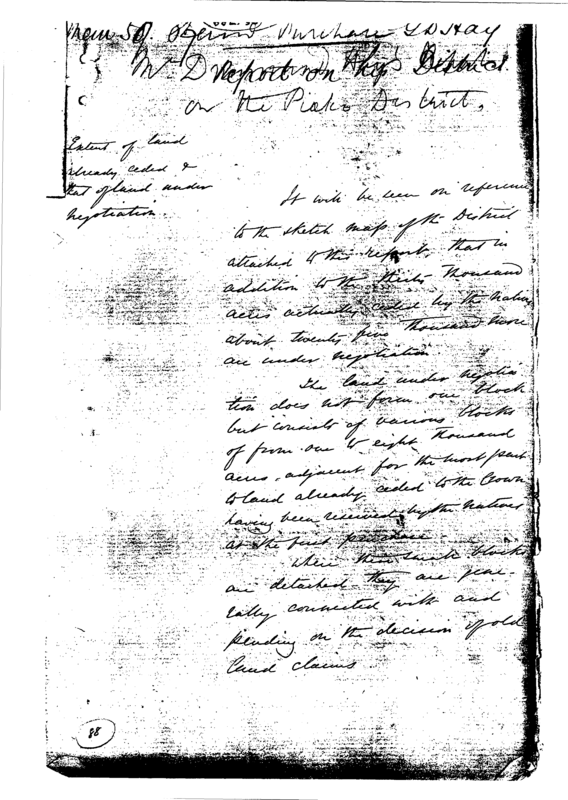 Purchase G D Hay
Mr D Report on His District
on the Piako District.
Extent of land
already ceded &
that of land under
negotiation.
It will be seen on reference
to the sketch map of the District
attached to this report, that in
addition to the thirty thousand
acres actually ceded by the Natives
about twenty five thousand more
are under negotiation
The land under negotia
tion does not form one block
but consists of various blocks
of from one to eight thousand
acres, adjacent for the most part
to land already ceded to the Crown
having been reserved by the Natives
at the first purchase.
Where these small blocks
are detached they are gene-
rally connected with and
pending on the decision of old
land claims.
88